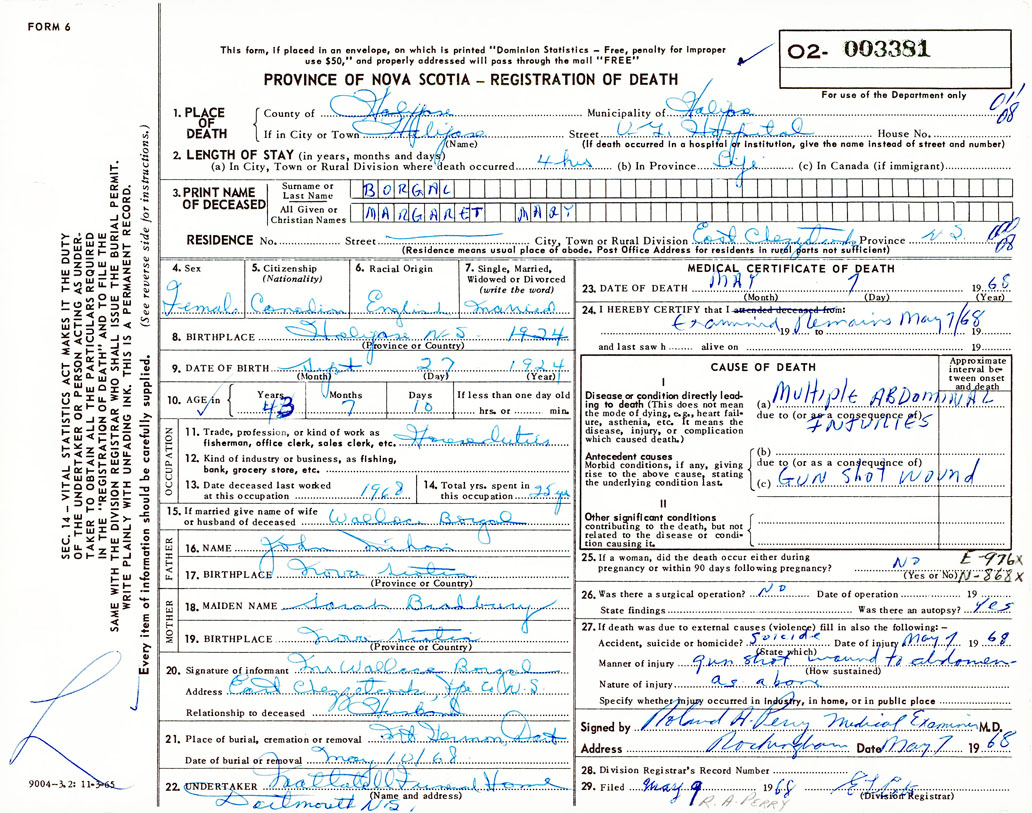 FORM 6
This form, if placed in an envelope, on which is printed "Dominion Statistics – Free, penalty for improper
use $50," and properly addressed will pass through the mail "FREE"
O2- 003381
For use of the Department only
PROVINCE OF NOVA SCOTIA – REGISTRATION OF DEATH
SEC. 14 – VITAL STATISTICS ACT MAKES IT THE DUTY
OF THE UNDERTAKER OR PERSON ACTING AS UNDER-
TAKER TO OBTAIN ALL THE PARTICULARS REQUIRED
IN THE "REGISTRATION OF DEATH" AND TO FILE THE
SAME WITH THE DIVISION REGISTRAR WHO SHALL ISSUE THE BURIAL PERMIT.
WRITE PLAINLY WITH UNFADING INK. THIS IS A PERMANENT RECORD.
Every item of information should be carefully supplied. (See reverse side for instructions.)
1. PLACE OF DEATH
County of Halifax Municipality of Halifax
If in City or Town Halifax Street V.G. Hospital House No.
(Name) (If death occurred in a hospital or institution, give the name instead of street and number)
2. LENGTH OF STAY (in years, months and days)
(a) In City, Town or Rural Division where death occurred 4 hrs (b) In Province Life (c) In Canada (if immigrant)
3. PRINT NAME OF DECEASED
Surname or Last Name BORGAL
All Given or Christian Names MARGARET MARY
RESIDENCE No. Street City, Town or Rural Division East Chezzetcook Province N S
(Residence means usual place of abode. Post Office Address for residents in rural parts not sufficient)
4. Sex Female
5. Citizenship (Nationality) Canadian
6. Racial Origin English
7. Single, Married, Widowed or Divorced (write the word) Married
8. BIRTHPLACE Halifax N.S. 1924
(Province or Country)
9. DATE OF BIRTH Sept 27 1924
(Month) (Day) (Year)
10. AGE in Years 43 Months 7 Days 10 If less than one day old hrs. or min.
OCCUPATION
11. Trade, profession, or kind of work as
fisherman, office clerk, sales clerk, etc.
12. Kind of industry or business, as fishing,
bank, grocery store, etc.
13. Date deceased last worked at this occupation 1968
14. Total yrs. spent in this occupation 25 yr
15. If married give name of wife
or husband of deceased Wallace Borgal
FATHER
16. NAME John
17. BIRTHPLACE Nova Scotia
(Province or Country)
MOTHER
18. MAIDEN NAME Sarah Bradbury
19. BIRTHPLACE Nova Scotia
(Province or Country)
20. Signature of informant Mr Wallace Borgal
Address East Chezzetcook, N.S
Relationship to deceased Husband
21. Place of burial, cremation or removal Mt Hermon, Dart
Date of burial or removal May 10/68
22. UNDERTAKER Funeral Home
(Name and address)
Dartmouth N.S.
9004-3.2: 11-3-65
MEDICAL CERTIFICATE OF DEATH
23. DATE OF DEATH MAY 7 1968
(Month) (Day) (Year)
24. I HEREBY CERTIFY that I attended deceased from:
Examined Remains May 7/68
19 to 19
and last saw h alive on 19
CAUSE OF DEATH
Approximate interval between onset and death
I
Disease or condition directly lead-
ing to death (This does not mean
the mode of dying, e.g., heart fail-
ure, asthenia, etc. It means the
disease, injury, or complication
which caused death.)
(a) Multiple ABDOMINAL
due to (or as a consequence of)
INJURIES
Antecedent causes
Morbid conditions, if any, giving
rise to the above cause, stating
the underlying condition last.
(b)
due to (or as a consequence of)
(c) GUN shot wound
II
Other significant conditions
contributing to the death, but not
related to the disease or condi-
tion causing it.
25. If a woman, did the death occur either during
pregnancy or within 90 days following pregnancy? NO
(Yes or No)
E-976x
N-868x
26. Was there a surgical operation? NO Date of operation 19
State findings Was there an autopsy? Yes
27. If death was due to external causes (violence) fill in also the following:–
Accident, suicide or homicide? Suicide Date of injury May 7 1968
(State which)
Manner of injury gun shot wound to abdomen
(How sustained)
Nature of injury as above
Specify whether injury occurred in industry, in home, or in public place
Signed by Roland A. Perry Medical Examiner M.D.
Address Rockingham Date May 7 1968
28. Division Registrar's Record Number
29. Filed May 9 1968
(Division Registrar)
R. A. PERRY